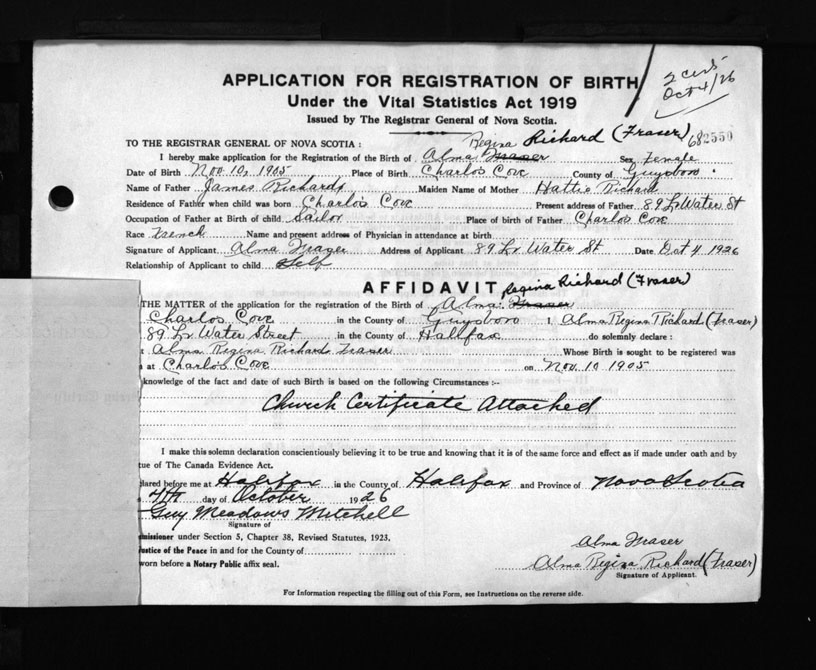 APPLICATION FOR REGISTRATION OF BIRTH
2 certs
Oct 4/26
Under the Vital Statistics Act 1919
Issued by The Registrar General of Nova Scotia.
TO THE REGISTRAR GENERAL OF NOVA SCOTIA :
Regina Richard (Fraser)
682550
I hereby make application for the Registration of the Birth of Alma Fraser Sex Female
Date of Birth Nov. 10, 1905 Place of Birth Charlos Cove County of Guysboro
Name of Father James Richards Maiden Name of Mother Hattie Richard
Residence of Father when child was born Charlos Cove Present address of Father 89 Lr Water St
Occupation of Father at Birth of child Sailor Place of birth of Father Charlos Cove
Race French Name and present address of Physician in attendance at birth
Signature of Applicant Alma Fraser Address of Applicant 89 Lr Water St Date Oct 4, 1926
Relationship of Applicant to child Self
AFFIDAVIT
Regina Richard (Fraser)
THE MATTER of the application for the registration of the Birth of Alma Fraser
Charlos Cove in the County of Guysboro I, Alma Regina Richard (Fraser)
89 Lr Water Street in the County of Halifax do solemnly declare :
Alma Regina Richard Fraser Whose Birth is sought to be registered was
at Charlos Cove on Nov. 10 1905
knowledge of the fact and date of such Birth is based on the following Circumstances :-
Church Certificate Attached
I make this solemn declaration conscientiously believing it to be true and knowing that it is of the same force and effect as if made under oath and by
tue of The Canada Evidence Act.
lared before me at Halifax in the County of Halifax and Province of Nova Scotia
4th day of October 1926
Guy Meadows Mitchell
Signature of
missioner under Section 5, Chapter 38, Revised Statutes, 1923.
Alma Fraser
ustice of the Peace in and for the County of
Alma Regina Richard (Fraser)
worn before a Notary Public affix seal.
Signature of Applicant.
For Information respecting the filling out of this Form, see Instructions on the reverse side.